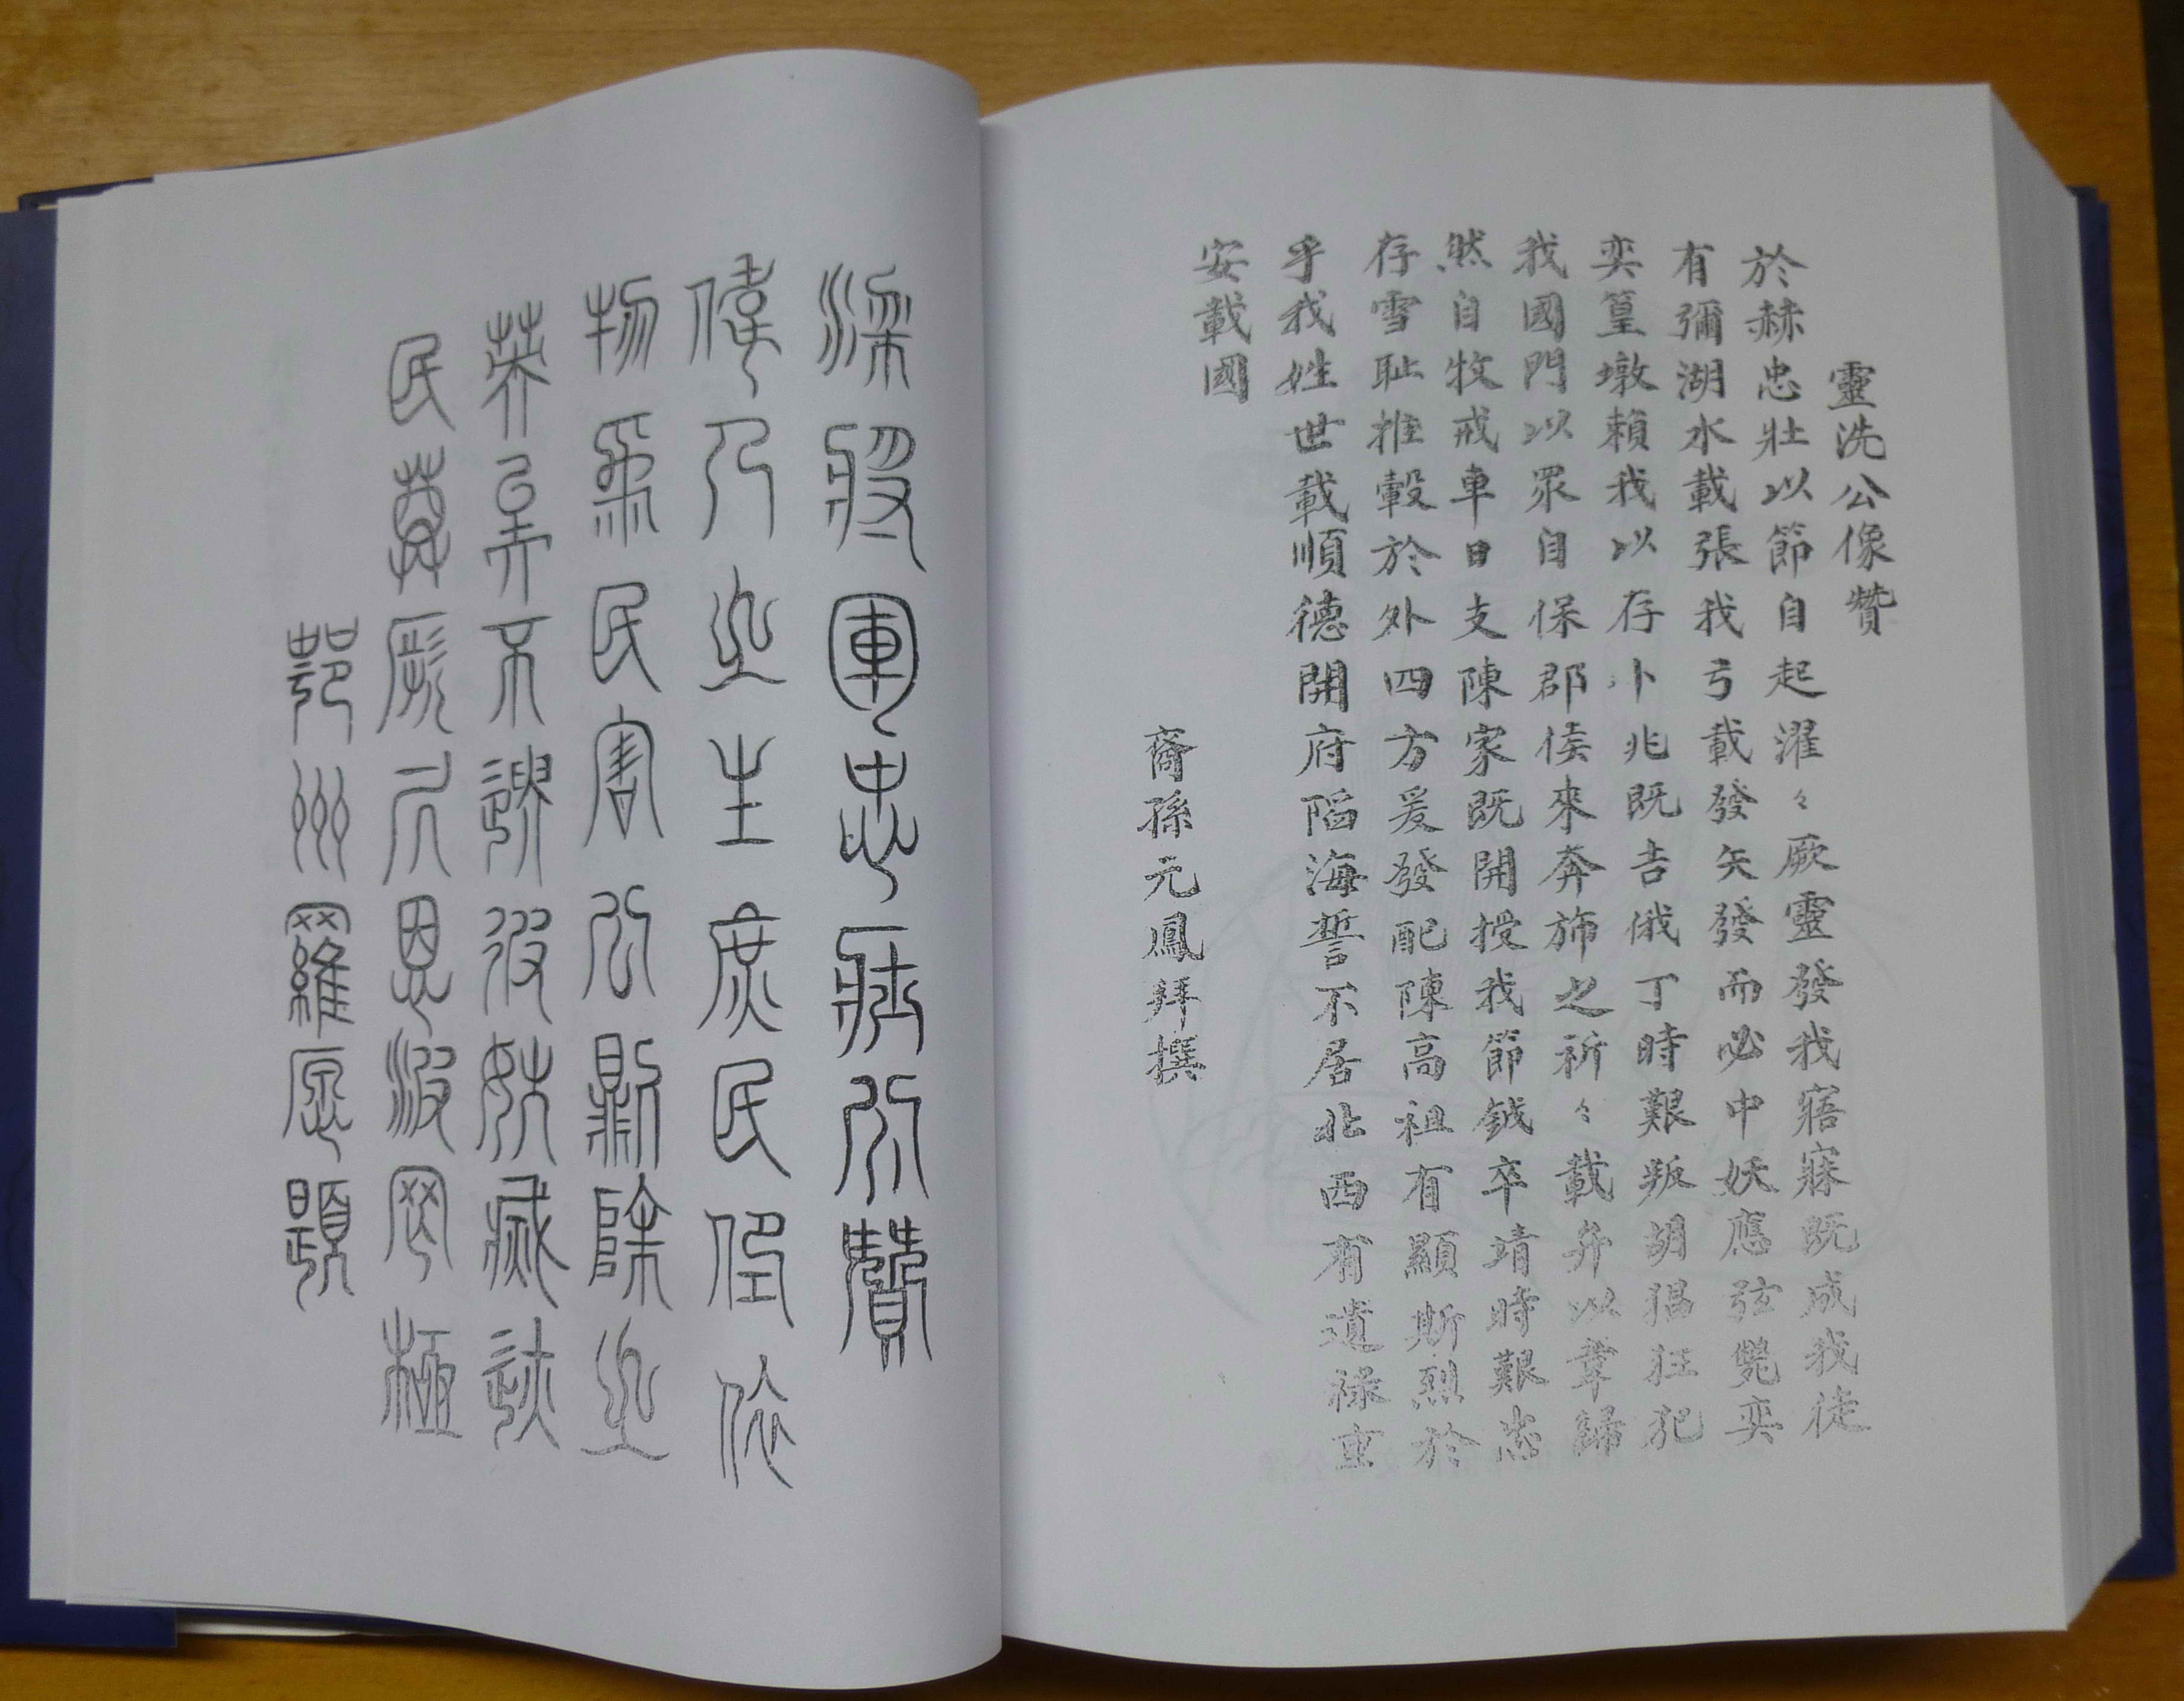 靈洗公像贊
於赫忠壯以節自起濯々厥靈發我寤寐既成我徒
有彌湖水載張我弓載發矢發而必中妖應弦斃奕
奕篁墩賴我以存卜兆既吉俄丁時艱叛胡猖狂犯
我國門以眾自保郡侯來奔斾之祈々載弁以韋歸
然自牧戒車日支陳家既開授我節鉞卒靖時艱
存雪耻推轂於外四方爰發配陳高祖有顯斯烈於
乎我姓世載順德開府陷海誓不居北西有遺祿重
安載國
裔孫元鳳拜撰
將軍忠壯公贊
偉乃之生庶民依
物爲民害公除之
弄不彼滅
民尊厥恩波罔極
鄂州羅愿題